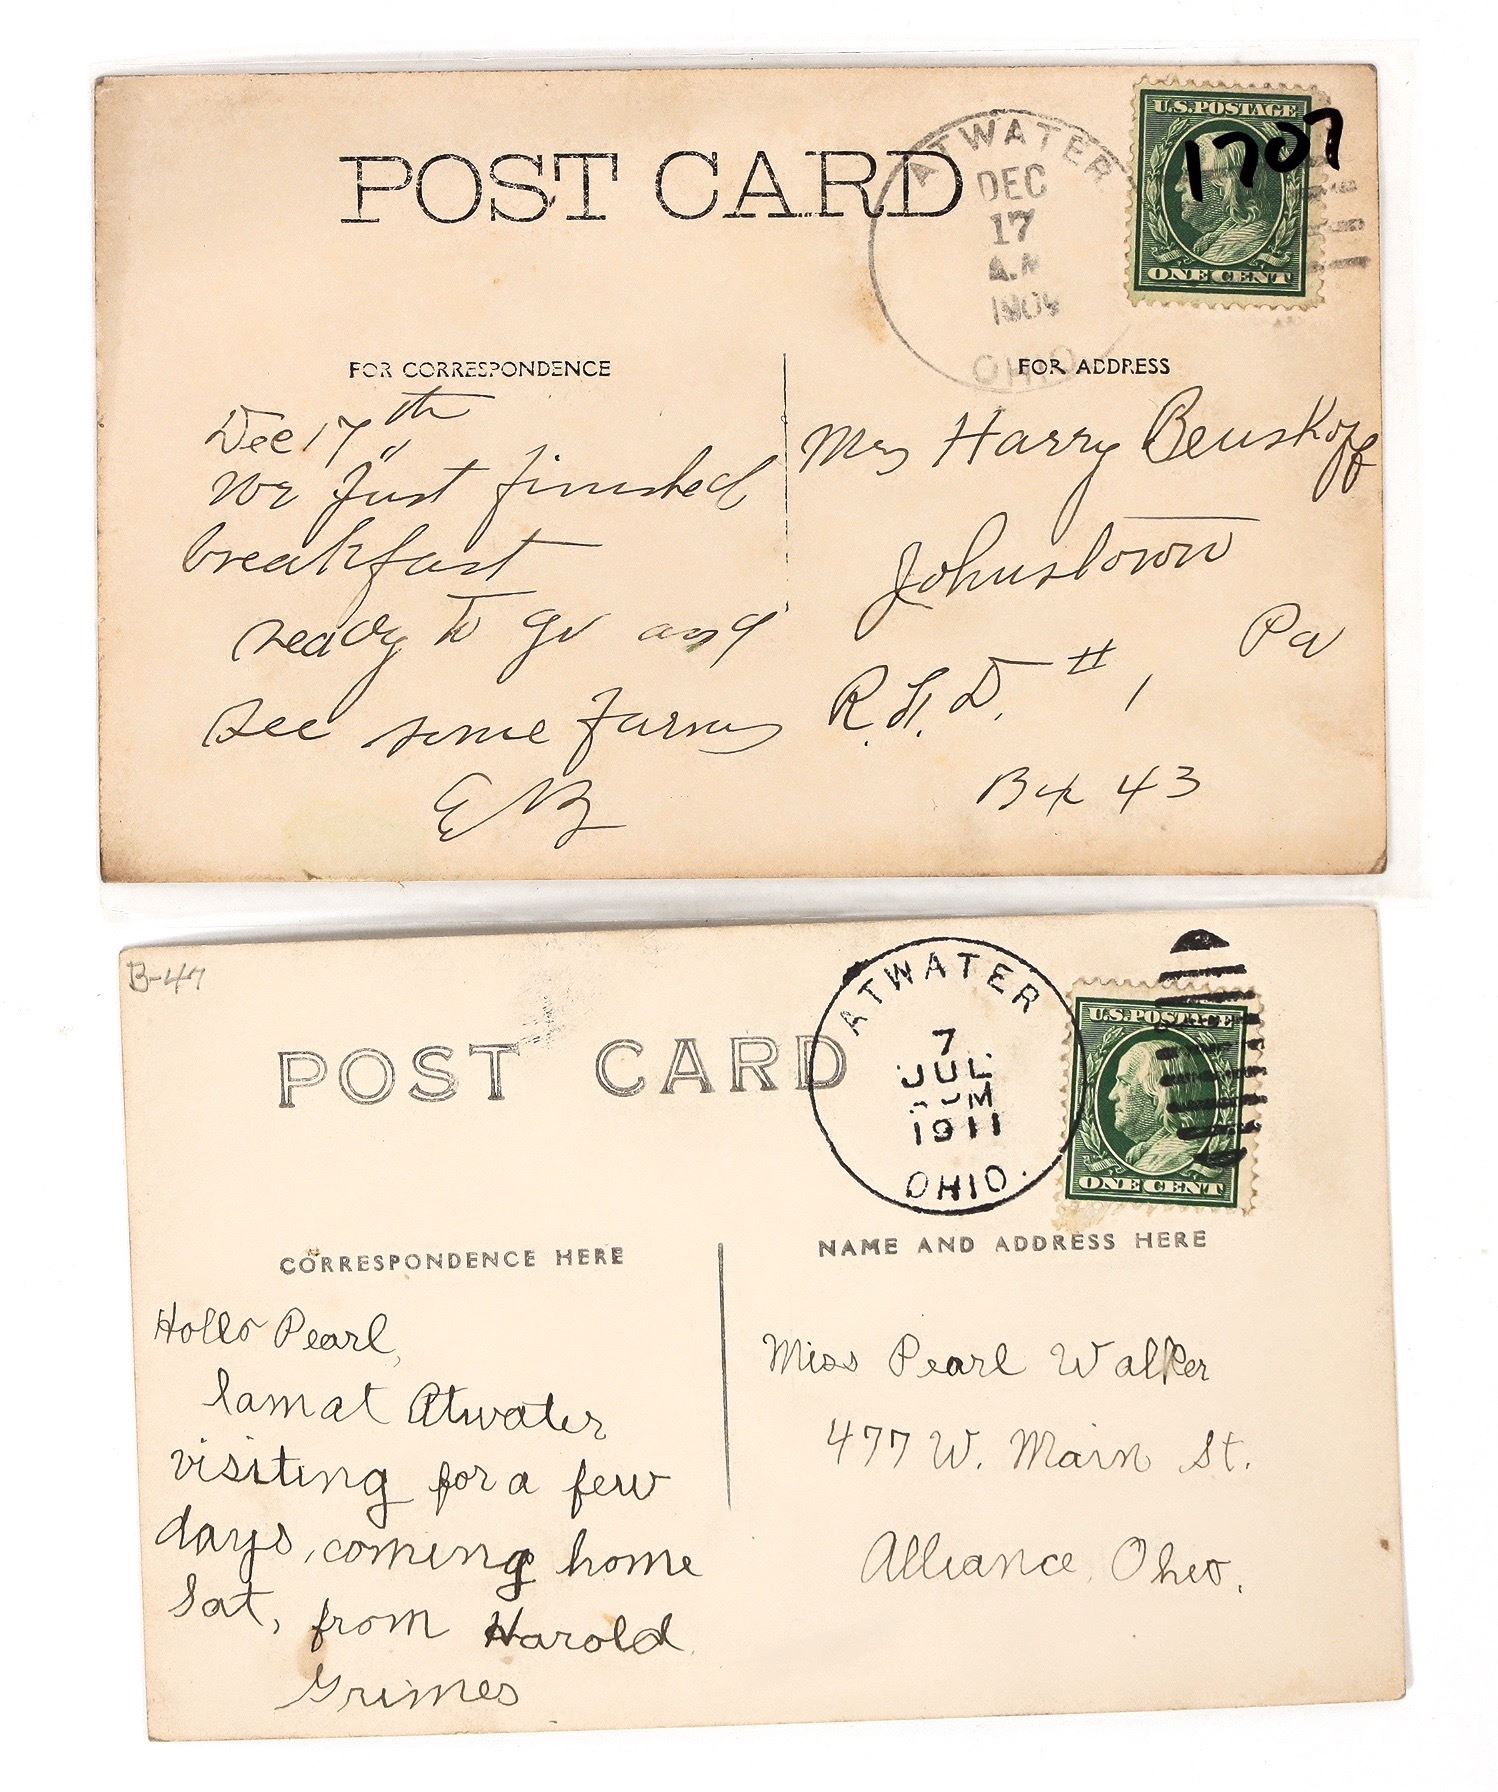 POST CARD
ATWATER
DEC
17
A.M
OHIO
U.S. POSTAGE
1707
ONE CENT
FOR CORRESPONDENCE
FOR ADDRESS
Dec 17th
We just finished
breakfast
ready to go and
see some farms
EB
Mrs Harry Beuskoff
Johnstown
Pa
R.F.D. #1
Bx 43
B-47
POST CARD
ATWATER
7
JUL
1911
OHIO.
U.S. POSTAGE
ONE CENT
CORRESPONDENCE HERE
NAME AND ADDRESS HERE
Hollo Pearl,
I am at Atwater
visiting for a few
days, coming home
Sat, from Harold
Grimes
Miss Pearl Walker
477 W. Main St.
Alliance, Ohio.